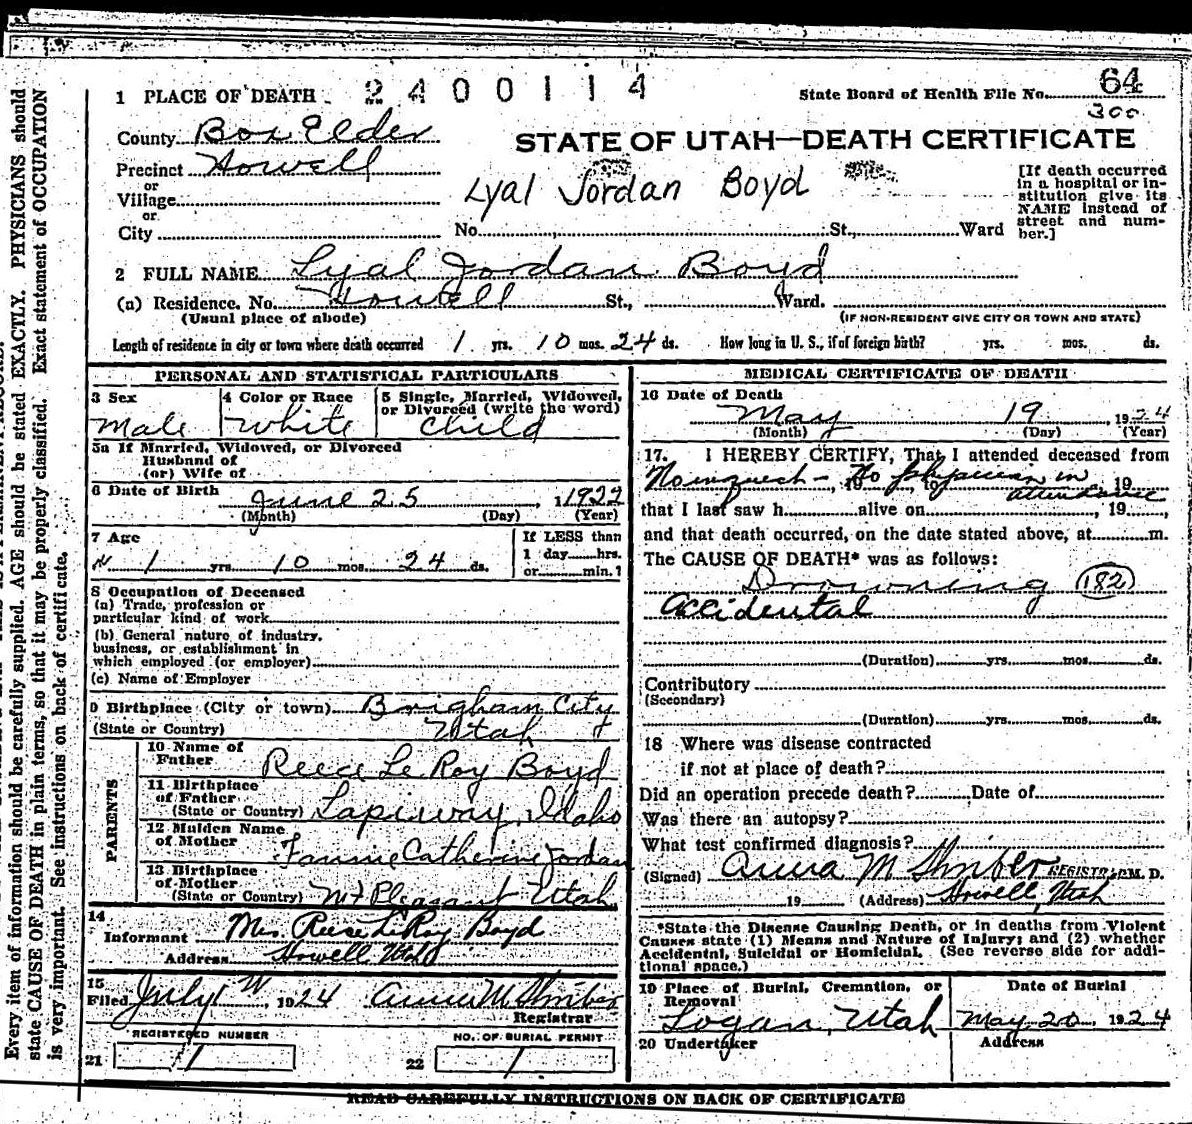 1 PLACE OF DEATH 2400114 State Board of Health File No. 64
300
County Box Elder
STATE OF UTAH—DEATH CERTIFICATE
Precinct Howell
or
Village
or
City
Lyal Jordan Boyd
No. St., Ward
[If death occurred
in a hospital or in-
stitution give its
NAME instead of
street and num-
ber.]
2 FULL NAME Lyal Jordan Boyd
(a) Residence. No. Howell St., Ward.
(Usual place of abode) (IF NON-RESIDENT GIVE CITY OR TOWN AND STATE)
Length of residence in city or town where death occurred 1 yrs. 10 mos. 24 ds. How long in U. S., if of foreign birth? yrs. mos. ds.
PERSONAL AND STATISTICAL PARTICULARS
3 Sex
Male
4 Color or Race
White
5 Single, Married, Widowed,
or Divorced (write the word)
Child
5a If Married, Widowed, or Divorced
Husband of
(or) Wife of
6 Date of Birth June 25, 1922
(Month) (Day) (Year)
7 Age
1 yrs. 10 mos. 24 ds.
If LESS than
1 day hrs.
or min.?
8 Occupation of Deceased
(a) Trade, profession or
particular kind of work
(b) General nature of industry,
business, or establishment in
which employed (or employer)
(c) Name of Employer
9 Birthplace (City or town) Brigham City
(State or Country) Utah
PARENTS
10 Name of
Father Reece Le Roy Boyd
11 Birthplace
of Father
(State or Country) Lapiway, Idaho
12 Maiden Name
of Mother Fannie Catherine Jordan
13 Birthplace
of Mother
(State or Country) Mt Pleasant Utah
14
Informant Mrs. Reese LeRoy Boyd
Address Howell Utah
15
Filed July 1924 Anna M
Registrar
REGISTERED NUMBER NO. OF BURIAL PERMIT
21 1 22 1
MEDICAL CERTIFICATE OF DEATH
16 Date of Death
May 19 1924
(Month) (Day) (Year)
17. I HEREBY CERTIFY, That I attended deceased from
No inquest - No physician in
attendance
19
that I last saw h alive on , 19 ,
and that death occurred, on the date stated above, at m.
The CAUSE OF DEATH* was as follows:
Drowning (182)
Accidental
(Duration) yrs. mos. ds.
Contributory
(Secondary)
(Duration) yrs. mos. ds.
18 Where was disease contracted
if not at place of death?
Did an operation precede death? Date of
Was there an autopsy?
What test confirmed diagnosis?
(Signed) Anna M REGISTRAR M. D.
19 (Address) Howell, Utah
*State the Disease Causing Death, or in deaths from Violent
Causes state (1) Means and Nature of Injury; and (2) whether
Accidental, Suicidal or Homicidal. (See reverse side for addi-
tional space.)
19 Place of Burial, Cremation, or
Removal
Logan, Utah
Date of Burial
May 20, 1924
20 Undertaker Address
READ CAREFULLY INSTRUCTIONS ON BACK OF CERTIFICATE
Every item of information should be carefully supplied. AGE should be stated EXACTLY. PHYSICIANS should
state CAUSE OF DEATH in plain terms, so that it may be properly classified. Exact statement of OCCUPATION
is very important. See instructions on back of certificate.